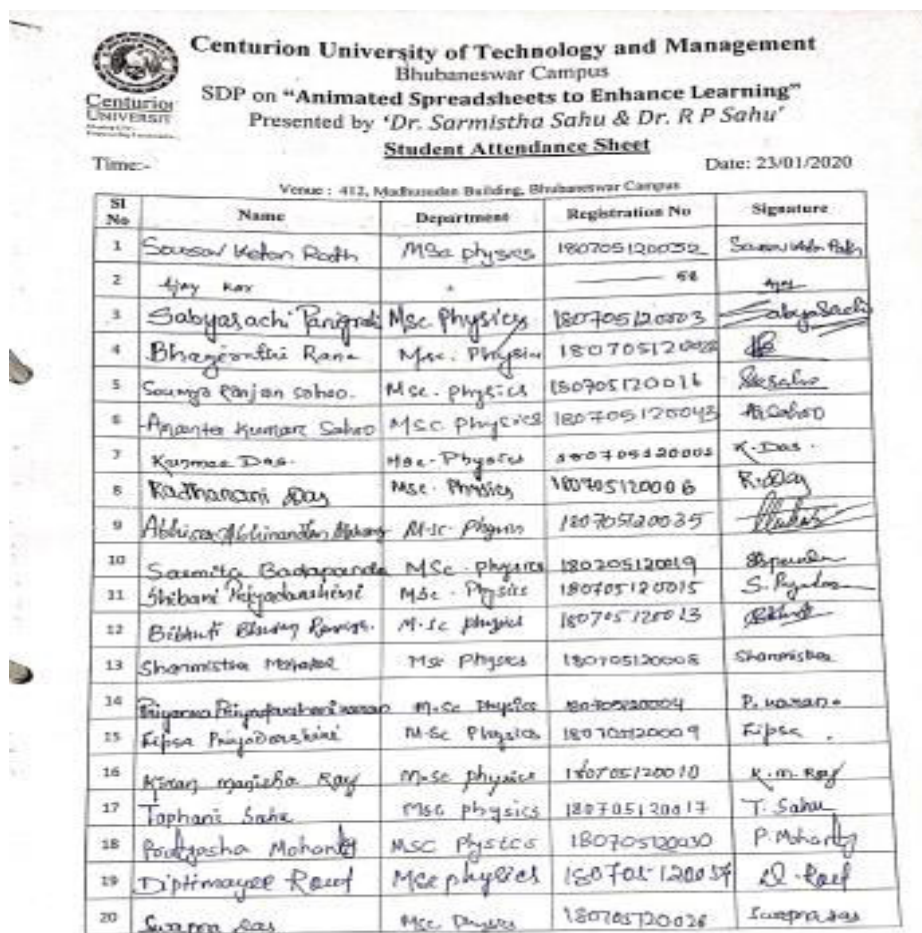 Centurion University of Technology and Management
Bhubaneswar Campus
SDP on "Animated Spreadsheets to Enhance Learning"
Presented by 'Dr. Sarmistha Sahu & Dr. R P Sahu'
Student Attendance Sheet
Centurion
UNIVERSITY
Time:- Date: 23/01/2020
Venue : 412, Madhusudan Building, Bhubaneswar Campus
Sl No Name Department Registration No Signature
1 Sourav Ketan Rath MSc physics 180705120052
2 Ajay Kar " 58 Ajay
3 Sabyasachi Panigrahi Msc Physics 180705120003 Sabyasachi
4 Bhagirathi Rana Msc. Physics 180705120028
5 Soumya Ranjan Sahoo. Msc. physics 180705120016
6 Ananta Kumar Sahoo MSc Physics 180705120043 AKSahoo
7 Das. Msc. Physics K. Das.
8 Radharani Das Msc. Physics 180705120006 R. Das
9 Abhinandan M.sc. Physics 180705120035
10 Sasmita Badapanda MSc. physics 180705120019
11 Shibani Priyadarshini M.Sc. Physics 180705120015
12 Bibhuti Bhusan M.Sc physics 180705120013
13 Sharmistha Msc Physics 180705120008 Sharmistha
14 M.Sc Physics 180705120004
15 Lipsa Priyadarshini M.Sc Physics 180705120009 Lipsa
16 Kiran manisha Ray M.sc physics 180705120010 K.m. Ray
17 Tophani Sahu Msc physics 180705120017 T. Sahu
18 Mohanty MSC Physics 180705120030 P. Mohanty
19 Diptimayee Rout Msc physics D. Rout
20 Swapna das Msc Physics 180705120026 Swapna das